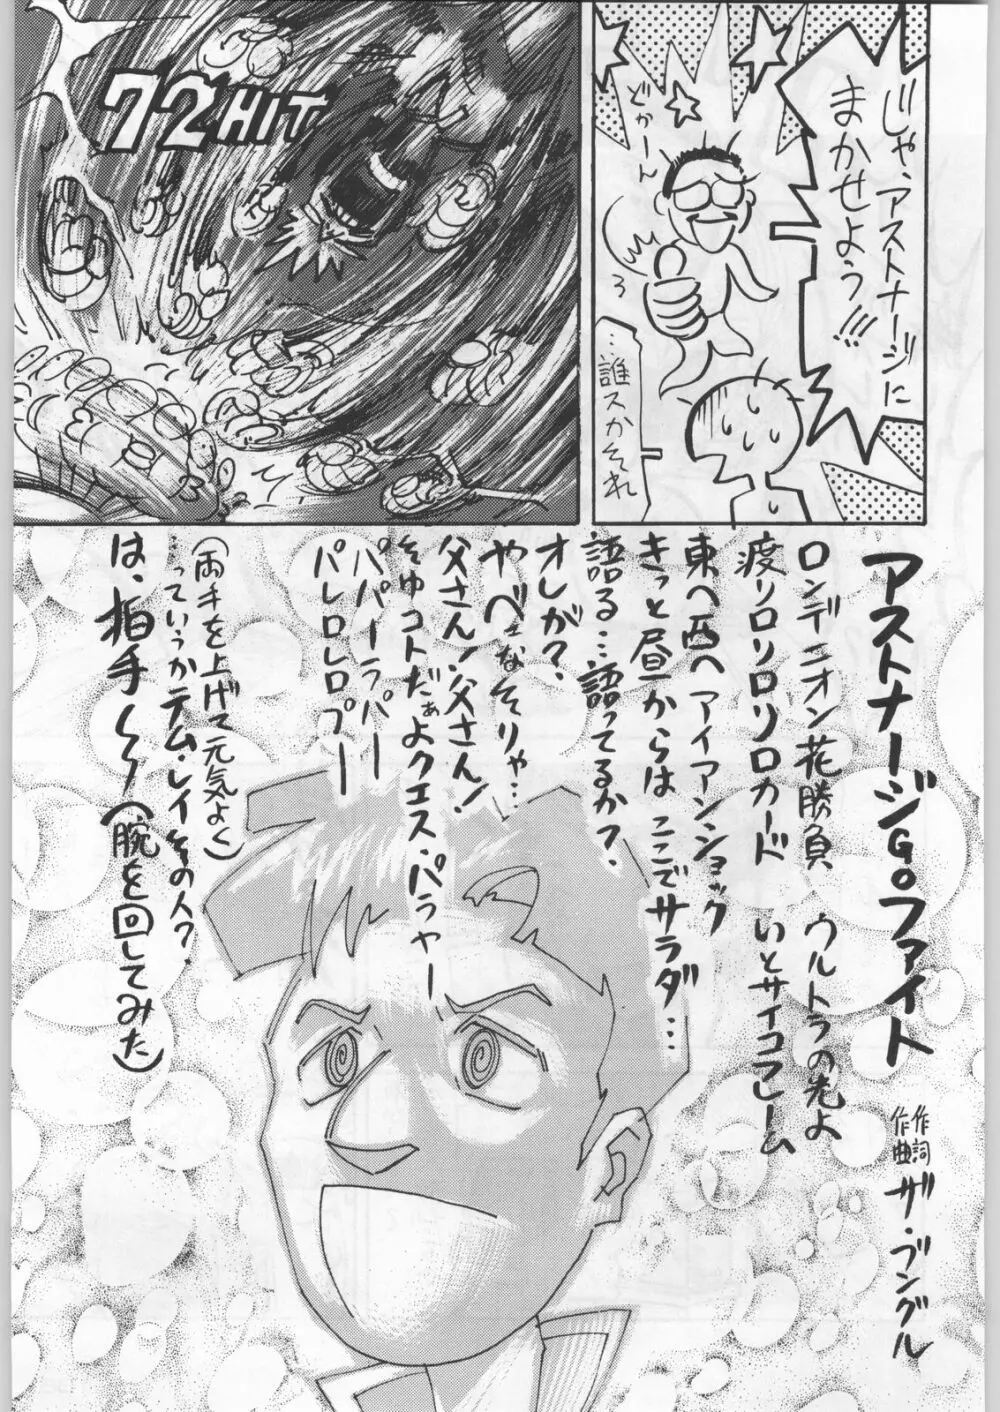 じゃ、アストナージに
まかせよう!!!
どかーん
…誰スかそれ
72HIT
アストナージG。ファイト
作詞
作曲
ザ・ブングル
ロンデニオン花勝負 ウルトラの光よ
渡リロリロリロリロカード いとサイコフレーム
東へ西へアイアンショック
きっと昼からは ここでサラダ…
語る…語ってるか?
オレが?
やべェなそりゃ…
父さん!父さん!
そゆコトだぁよクエス・パラャー
パパーラパー
パレロレロプー
(両手を上げて元気よく)
…っていうかテム・レイその人?
は、拍手〜〜(腕を回してみた)